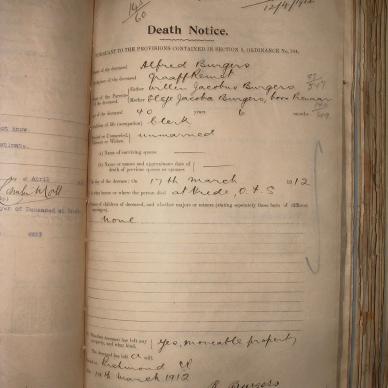 14/60
12/4/1912
Death Notice.
PURSUANT TO THE PROVISIONS CONTAINED IN SECTION 1, ORDINANCE No. 104.
Name of the deceased Alfred Burgers
Birthplace of the deceased Graaff Reinet
Names of the Parents of the deceased
Father Willem Jacobus Burgers
Mother Jacoba Burgers, born
Age of the deceased 40 years 6 months
Condition of life (occupation) Clerk
Married or Unmarried, Widower or Widow unmarried
(a) Name of surviving spouse
(b) Name or names and approximate date of death of previous spouse or spouses
The day of the decease: On 17th March 1912
At what house or where the person died at Vrede, O.F.S
Names of children of deceased, and whether majors or minors (stating separately those born of different marriages).
None
Whether deceased has left any property, and what kind. Yes, moveable property
The deceased has left a will.
Richmond CP
19th March 1912
Burgers